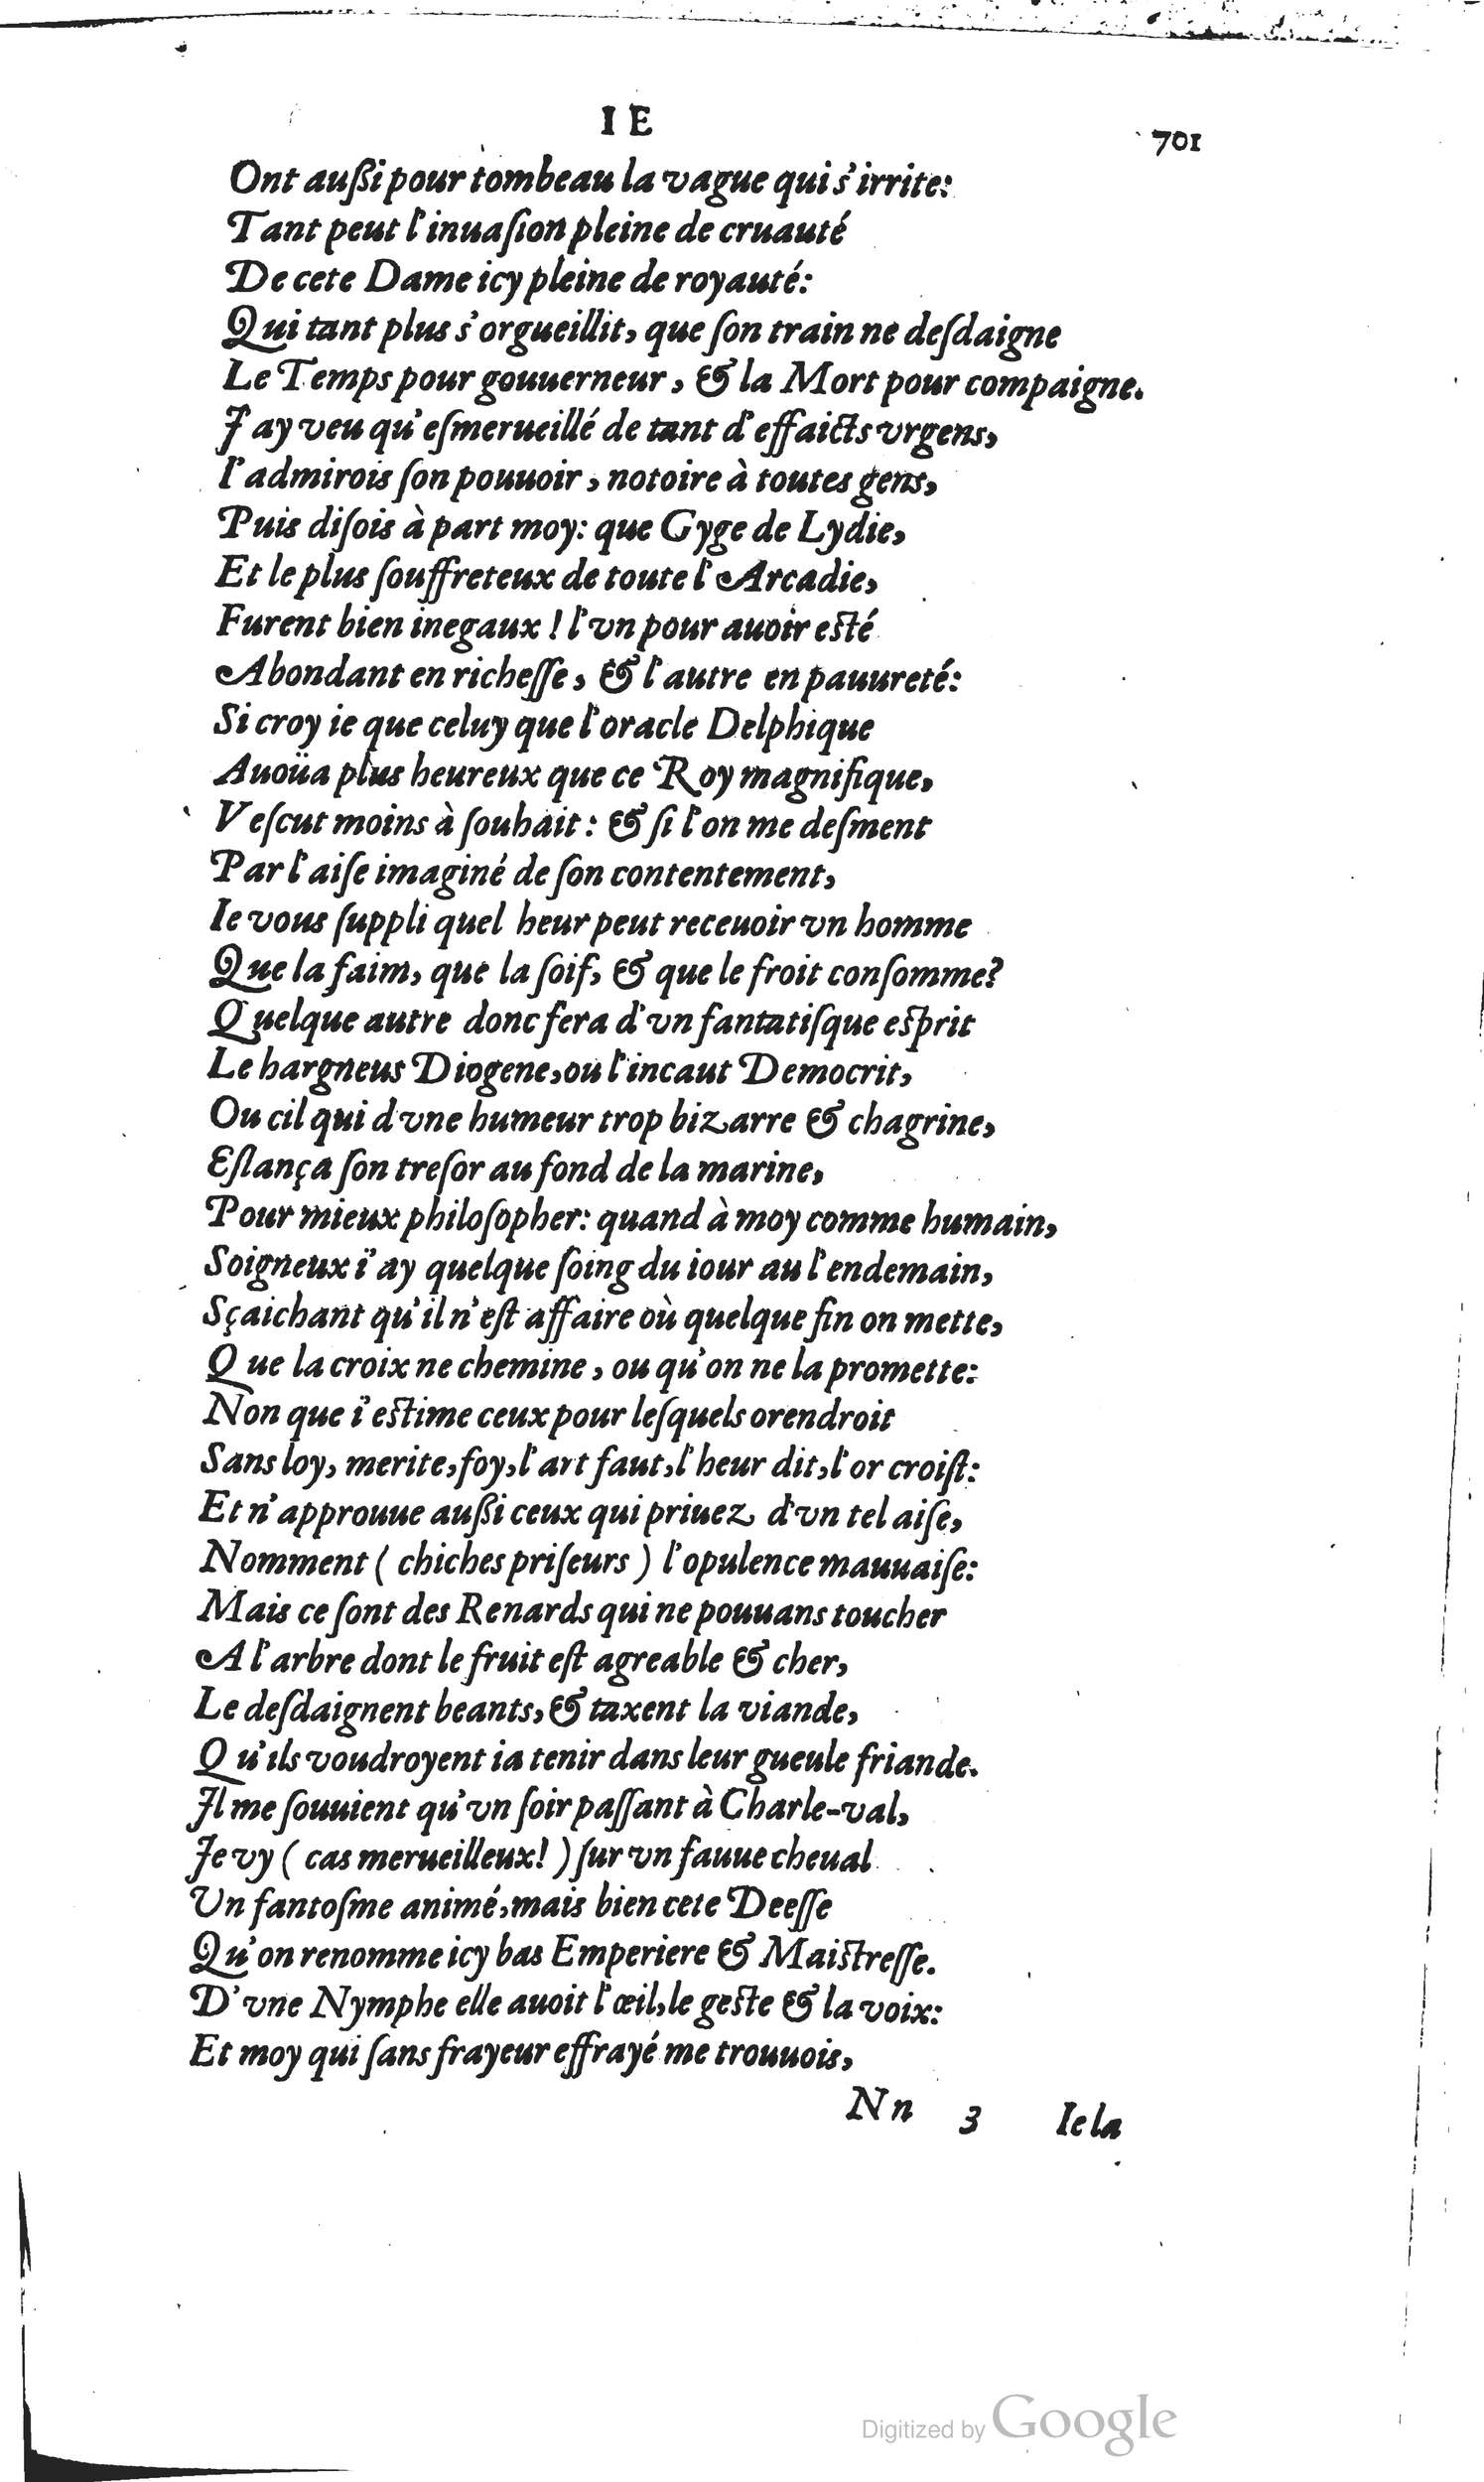 I E
701
Ont außi pour tombeau la vague qui s'irrite:
Tant peut l'inuaſion pleine de cruauté
De cete Dame icy pleine de royauté:
Qui tant plus s'orgueillit, que ſon train ne deſdaigne
Le Temps pour gouuerneur, & la Mort pour compaigne.
J'ay veu qu'eſmerueillé de tant d'effaicts vrgens,
I'admirois ſon pouuoir, notoire à toutes gens,
Puis diſois à part moy: que Gyge de Lydie,
Et le plus ſouffreteux de toute l'Arcadie,
Furent bien inegaux! l'vn pour auoir eſté
Abondant en richeſſe, & l'autre en pauureté:
Si croy ie que celuy que l'oracle Delphique
Auoüa plus heureux que ce Roy magnifique,
Veſcut moins à ſouhait: & ſi l'on me deſment
Par l'aiſe imaginé de ſon contentement,
Ie vous ſuppli quel heur peut receuoir vn homme
Que la faim, que la ſoif, & que le froit conſomme?
Quelque autre donc fera d'vn fantatiſque eſprit
Le hargneus Diogene, ou l'incaut Democrit,
Ou cil qui d'vne humeur trop bizarre & chagrine,
Eſlança ſon treſor au fond de la marine,
Pour mieux philoſopher: quand à moy comme humain,
Soigneux i'ay quelque ſoing du iour au l'endemain,
Sçaichant qu'il n'eſt affaire où quelque fin on mette,
Que la croix ne chemine, ou qu'on ne la promette:
Non que i'eſtime ceux pour leſquels orendroit
Sans loy, merite, foy, l'art faut, l'heur dit, l'or croiſt:
Et n'approuue außi ceux qui priuez d'vn tel aiſe,
Nomment ( chiches priſeurs ) l'opulence mauuaiſe:
Mais ce ſont des Renards qui ne pouuans toucher
A l'arbre dont le fruit eſt agreable & cher,
Le deſdaignent beants, & taxent la viande,
Qu'ils voudroyent ia tenir dans leur gueule friande.
Il me ſouuient qu'vn ſoir paſſant à Charle-val,
Je vy ( cas merueilleux! ) ſur vn fauue cheual
Un fantoſme animé, mais bien cete Deeſſe
Qu'on renomme icy bas Emperiere & Maiſtreſſe.
D'vne Nymphe elle auoit l'œil, le geſte & la voix:
Et moy qui ſans frayeur effrayé me trouuois,
Nn 3 Ie la
Digitized by Google